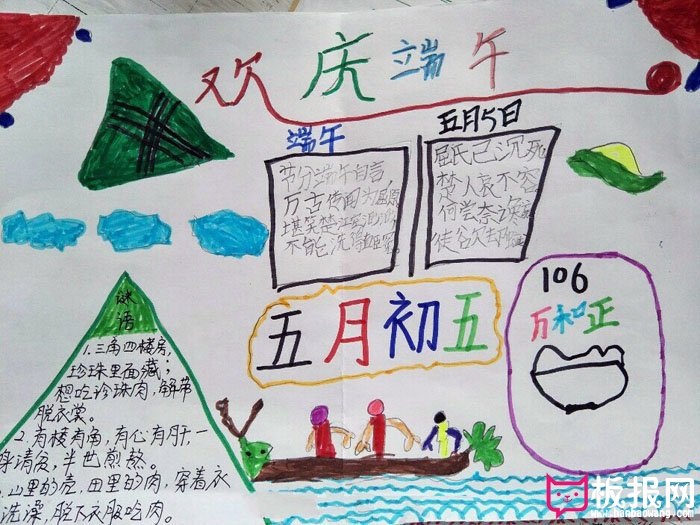 欢庆端午
端午
节分端午自言
万古传闻为屈原
堪笑楚江
不能洗得
五月5日
屈氏已沉死
楚人哀不容
何尝奈谗
徒欲
106
万和正
五月初五
谜语
1.三角四楼房,
珍珠里面藏;
想吃珍珠肉,解带
脱衣裳。
2.有棱有角,有心有肝,一
身清白,半世煎熬。
山里的壳,田里的肉,穿着衣
洗澡,脱下衣服吃肉。
扳报网
www.banbaowang.com